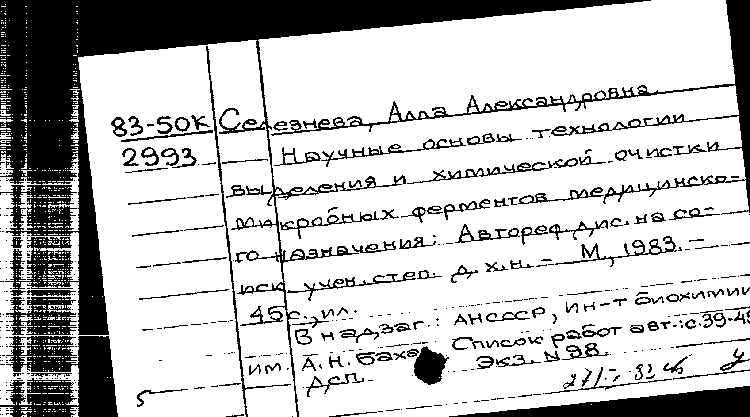 83-50К Селезнева, Алла Александровна.
2993 Научные основы технологии
выделения и химической очистки
микробных ферментов медицинско-
го назначения: Автореф. дис. на со-
иск. учен. степ. д. х. н. - М., 1983. -
45 с., ил.
В надзаг.: АН СССР, ин-т биохимии
им. А. Н. Баха. Список работ авт.: с. 39-45
ДСП. Экз. N 98.
5